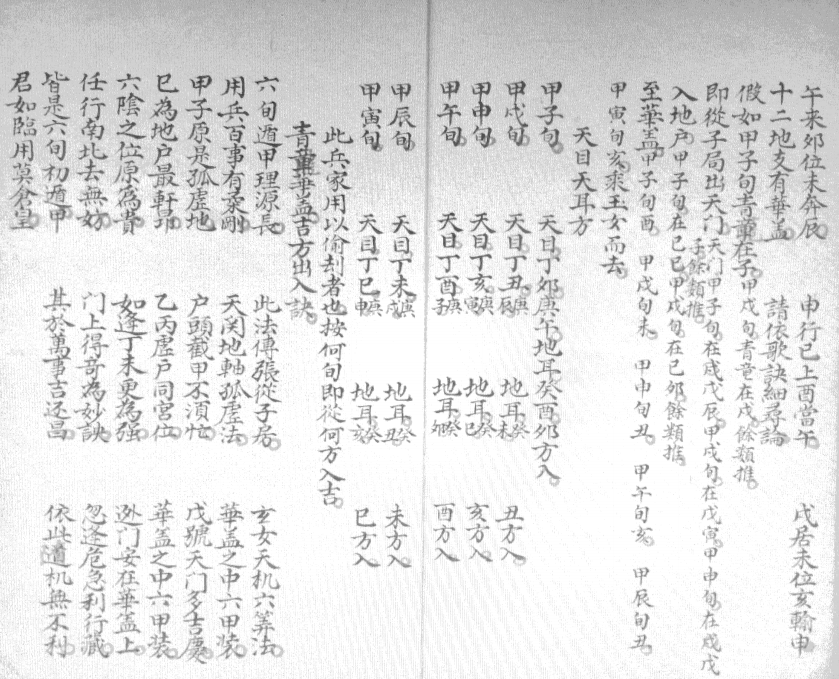 午來卯位未奔辰 申行巳上酉當午 戌居未位亥輸申
十二地支有華盖 請依歌訣細尋論
假如甲子旬青童在子甲戌旬青童在戌餘類推
即從子局出天門天門甲子旬在戌戌辰甲戌旬在戌寅甲申旬在戌戊子餘類推
入地户甲子旬在巳巳甲戌旬在己卯餘類推
至華盖甲子旬酉 甲戌旬未 甲申旬丑 甲午旬亥 甲辰旬丑
甲寅旬亥乘玉女而去
天目天耳方
甲子旬 天目丁卯庚午地耳癸酉卯方入
甲戌旬 天目丁丑庚辰 地耳癸未 丑方入
甲申旬 天目丁亥庚寅 地耳癸巳 亥方入
甲午旬 天目丁酉庚子 地耳癸卯 酉方入
甲辰旬 天目丁未庚戌 地耳癸丑 未方入
甲寅旬 天目丁巳庚申 地耳癸亥 巳方入
此兵家用以偷刦者也按何旬即從何方入吉
青童華盖吉方出入訣
六旬遁甲理源長 此法傳張從子房 玄女天机六筭法
用兵百事有柔剛 天関地軸孤虛法 華盖之中六甲装
甲子原是孤虛地 户頭截甲不須忙 戊號天门多吉慶
巳為地户最軒昻 乙丙虛户同宮位 華盖之中六甲装
六陰之位原為貴 如逢丁未更為强 迯门安在華盖上
任行南北去無妨 門上得奇為妙訣 忽逢危急利行藏
皆是六旬初遁甲 其於萬事吉还昌 依此道机無不利
君如臨用莫倉皇